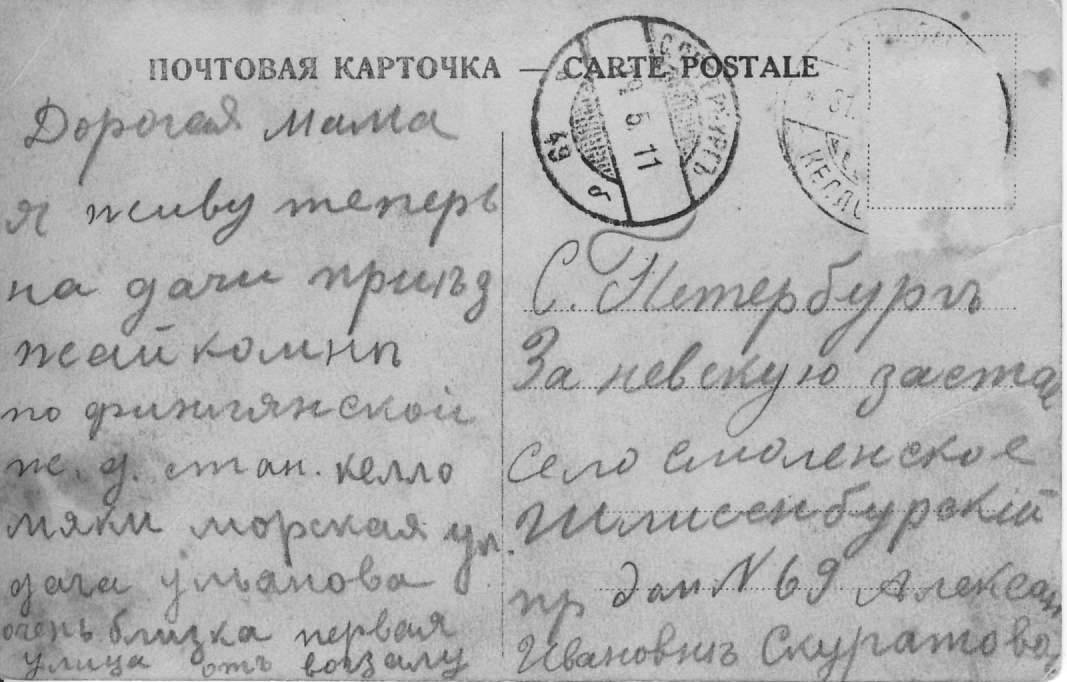 ПОЧТОВАЯ КАРТОЧКА — CARTE POSTALE
2 5 11
49
31
КЕЛЛО
Дорогая мама
я живу теперь
на дачи приѣз
жай комнѣ
по финлянской
ж. д. стан. келло
мяки морская ул.
дача ульянова
очень близка первая
улица отъ вокзалу
С. Петербургъ
За невскую заста
село смоленское
Шлиссенбурский
пр дом N 69 Алексан
Ивановнѣ Скуратово